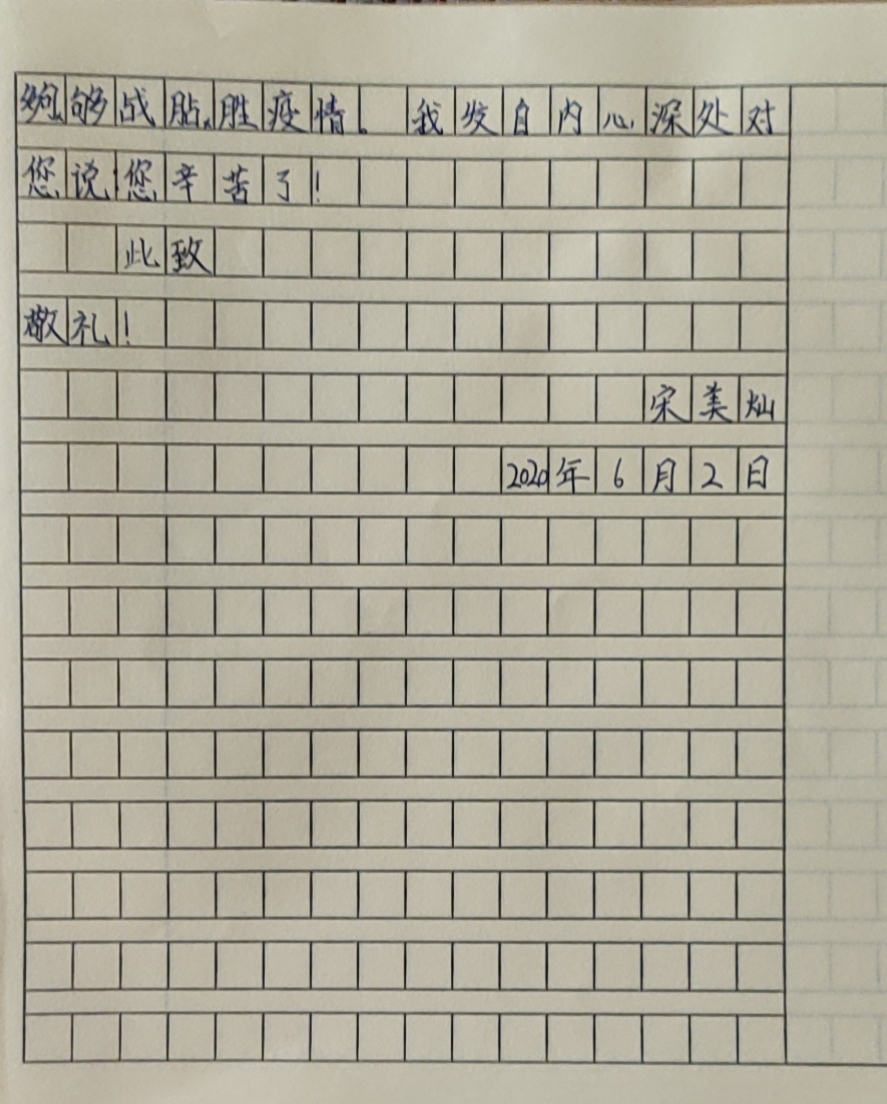 够战胜疫情。我发自内心深处对
您说:您辛苦了!
此致
敬礼!
宋美灿
2020年6月2日